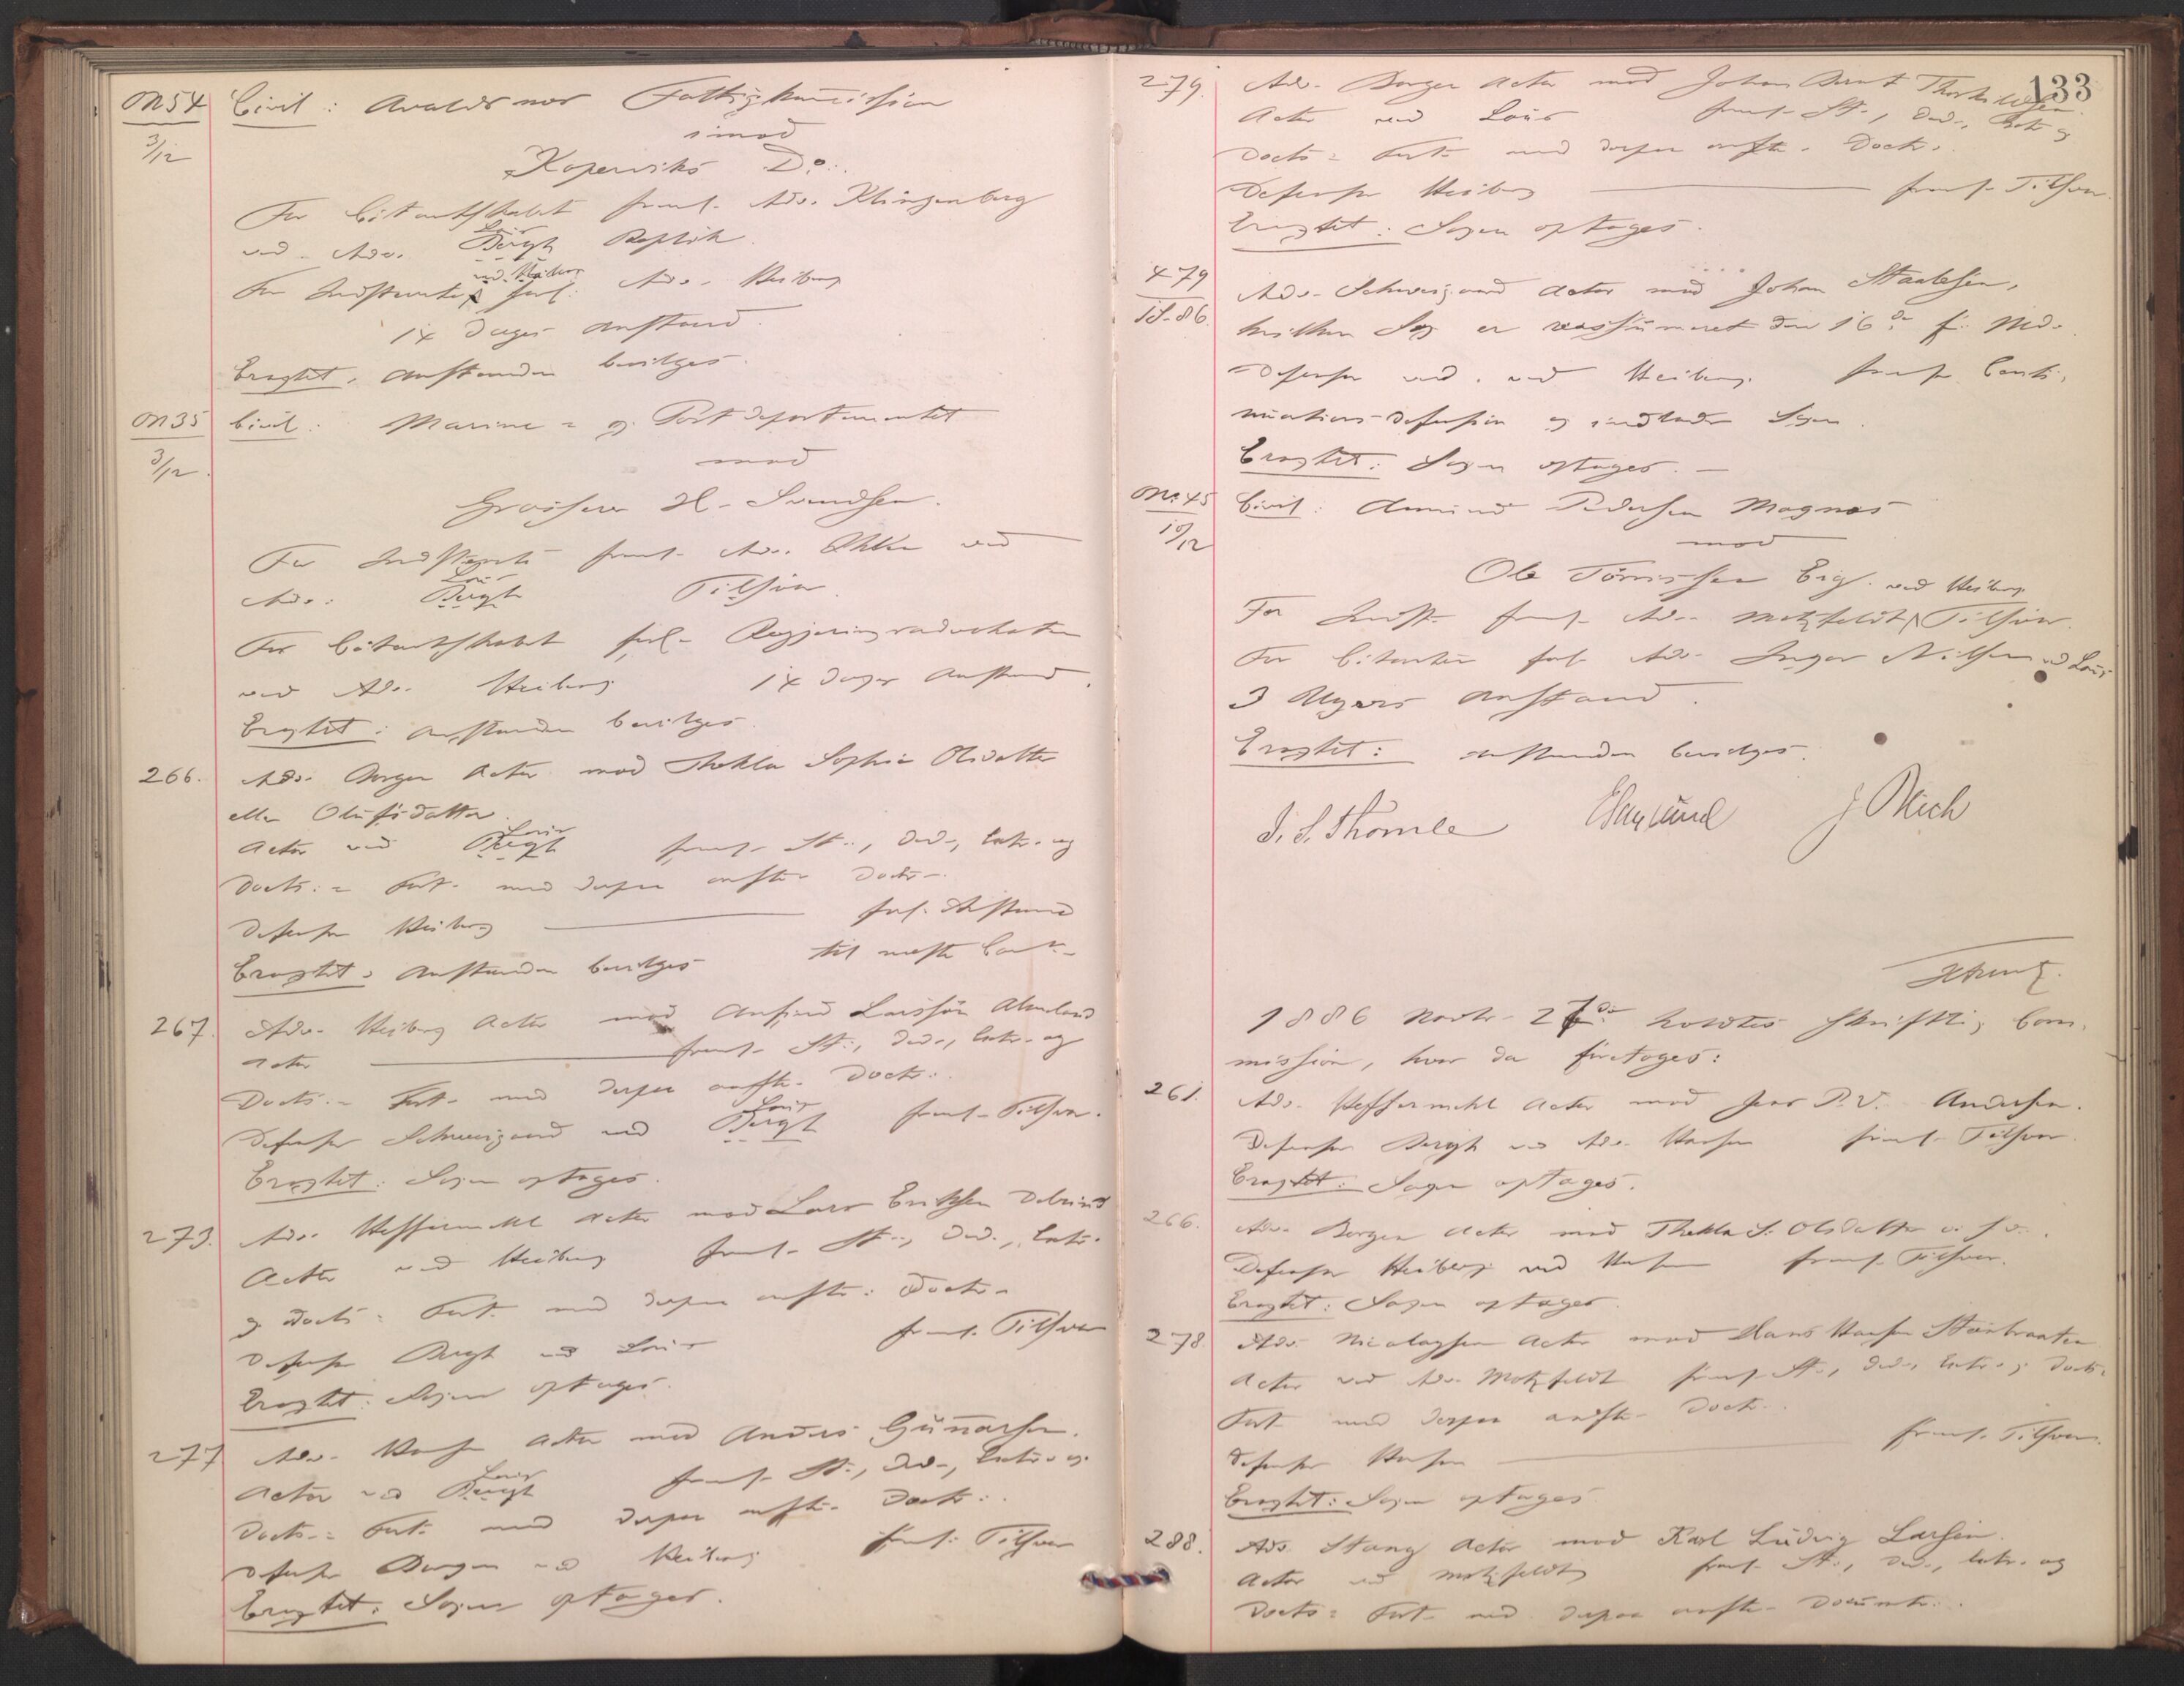 No 54 Civil: Avaldsnes Fattigkommission
3/12 imod
Koperviks Do.
For Citantskabet freml. Adv. Klingenberg
ved Adv. Bergh Louis Replik.
For Indstevnte ved Heiberg forl. Adv. Heiberg
14 Dages Anstand.
Eragtet: Anstanden bevilges.
No 35 Civil: Marine- og Postdepartementet
3/12. mod
Grosserer H. Svendsen.
For Indstevnte freml. Adv. ved
Adv. Bergh Louis Tilsvar.
For Citantskabet forl. Regjeringsadvokaten
ved Adv. Heiberg 14 Dages Anstand.
Eragtet: Anstanden bevilges.
266. Adv. Borgen Actor mod Thekla Sophie Olsdatter
eller Olufsdatter.
Actor ved Bergh Louis freml. St., Ded., Extr. og
Docts. Fort. med derpaa anfte. Docts.
Defensor Heiberg forl. Anstand
Eragtet: Anstanden bevilges til næste Com.
267. Adv. Heiberg Actor mod Anfind Larssøn
Actor freml. St., Ded., Extr. og
Docts. Fort. med derpaa anfte. Docts.
Defensor Schweigaard ved Bergh Louis freml. Tilsvar.
Eragtet: Sagen optages.
273. Adv. Hesselmann Actor mod Lars Eriksen
Actor ved Heiberg freml. St., Ded., Extr.
og Docts. Fort. med derpaa anfte. Docts.
Defensor Bergh ved Louis freml. Tilsvar
Eragtet: Sagen optages.
277 Adv. Actor mod Anders Gunnarsen.
Actor ved Bergh Louis freml. St., Ded., Extr. og
Docts. Fort. med derpaa anfte. Docts.
Defensor Borgen ved Heiberg freml. Tilsvar
Eragtet: Sagen optages.
133
279. Adv. Borgen Actor mod Johan Bernt Thorkildsen.
Actor ved Louis freml. St., Ded., Extr. og
Docts. Fort. med derpaa anfte. Docts.
Defensor Heiberg freml. Tilsvar.
Eragtet: Sagen optages.
479 Adv. Schweigaard Actor mod Johan Staalesen,
hvilken Sag er reassumeret den 16de f. Md.
Defensor ved Heiberg freml. Conti-
nuations-Defension og indlader Sagen.
Eragtet: Sagen optages.
No. 45 Civil: Pedersen Magnæs
10/12 mod
Ole Tönnissen ved Heiberg
For Indst. freml. Adv. Motzfeldt Tilsvar.
For Citanten forl. Adv. Nilsen ved Louis
3 Ugers Anstand.
Eragtet: Anstanden bevilges.
I. S. Thomle J Rich
1886 Novbr. 27de holdtes skriftlig Com-
mission, hvor da foretoges:
261. Adv. Hesselmann Actor mod Jens P. V. Andersen.
Defensor Bergh ved Adv. Hansen freml. Tilsvar
Eragtet: Sagen optages.
266. Adv. Borgen Actor mod Thekla S. Olsdatter
Defensor Heiberg ved Hansen freml. Tilsvar.
Eragtet: Sagen optages.
278. Adv. Nicolaysen Actor mod Hans Hansen
Actor ved Adv. Motzfeldt freml. St., Ded., Extr. og Docts.
Fort. med derpaa anfte. Docts.
Defensor Hansen freml. Tilsvar.
Eragtet: Sagen optages.
288. Adv. Stang Actor mod Karl Ludvig Larsen.
Actor ved Motzfeldt freml. St., Ded., Extr. og
Docts. Fort. med derpaa anfte. Documtr.